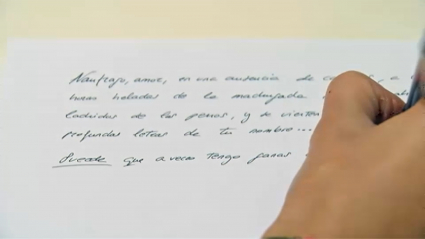 Naufrago, amor, en una ausencia de a
heladas de la madrugada
ladridos de los perros, y se vierten
profundas letras de tu nombre...
Sucede que a veces tengo ganas